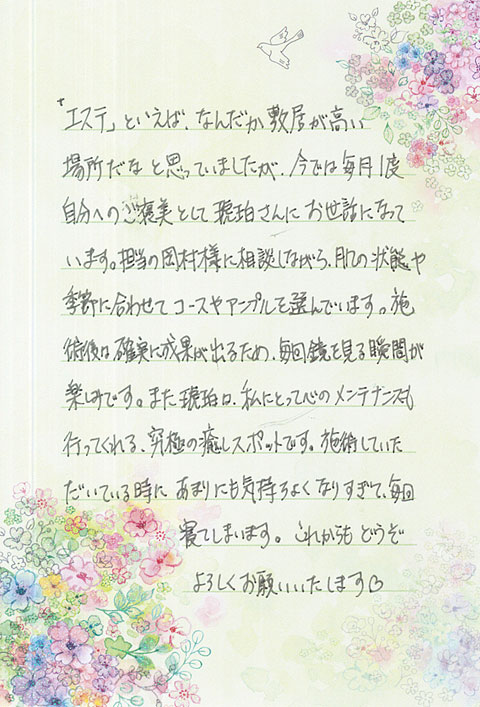 「エステ」といえば、なんだか敷居が高い
場所だなと思っていましたが、今では毎月1度
自分へのご褒美として琥珀さんにお世話になって
います。担当の岡村様に相談しながら、肌の状態や
季節に合わせてコースやアンプルを選んでいます。施
術後は確実に成果が出るため、毎回鏡を見る瞬間が
楽しみです。また琥珀は、私にとって心のメンテナンスも
行ってくれる、究極の癒しスポットです。施術していた
だいている時にあまりにも気持ちよくなりすぎて、毎回
寝てしまいます。これからもどうぞ
よろしくお願いいたします♡